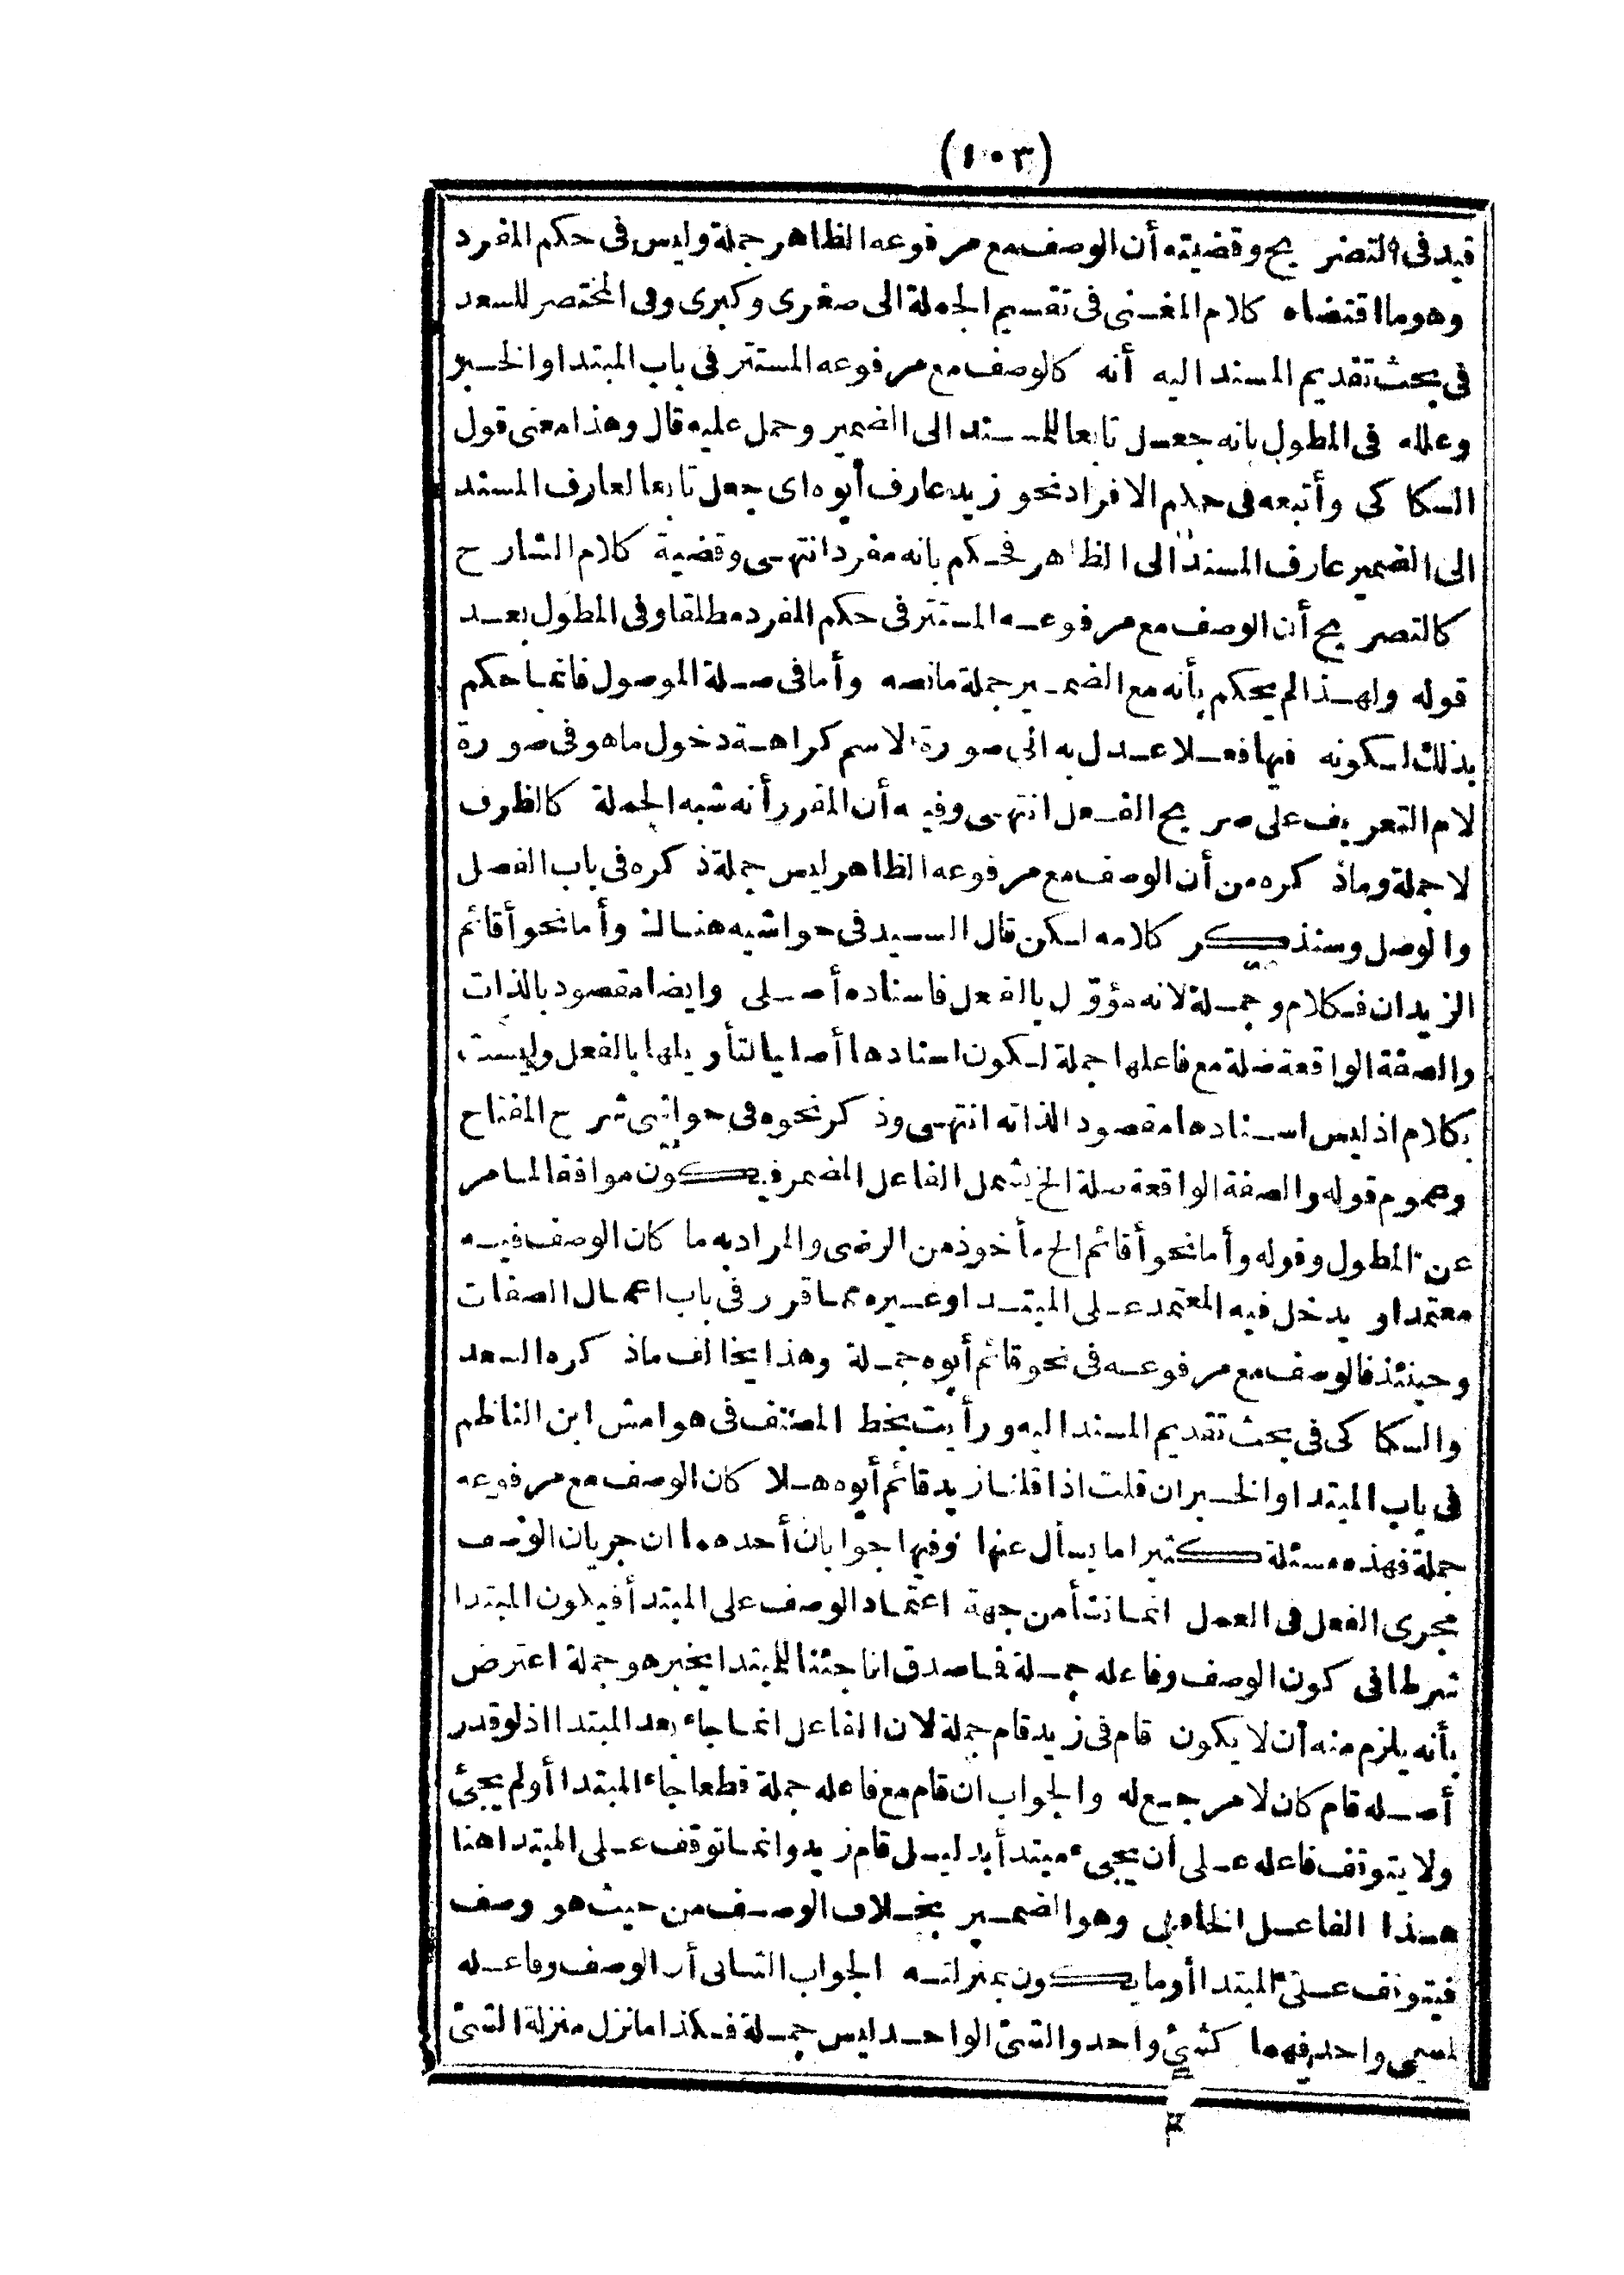 (١٠٣)
قيد في التصريح وقضيته أن الوصف مع مرفوعه الظاهر جملة وليس في حكم المفرد
وهو ما اقتضاه كلام المغنى في تقسيم الجملة الى صغرى وكبرى وفى المختصر للسعد
في بحث تقديم المسند اليه أنه كالوصف مع مرفوعه المستتر في باب المبتدا والخبر
وعلله في المطول بانه جعل تابعا للمسند الى الضمير وحمل عليه قال وهذا معنى قول
السكاكى وأتبعه في حكم الافراد نحو زيد عارف أبوه اى جعل تابعا لعارف المسند
الى الضمير عارف المسند الى الظاهر فحكم بانه مفرد انتهى وقضية كلام الشارح
كالتصريح أن الوصف مع مرفوعه المستتر في حكم المفرد مطلقا وفى المطول بعد
قوله ولهذا لم يحكم بأنه مع الضمير جملة مانصه وأما في صلة الموصول فانما حكم
بذلك لكونه فيها فعلا عدل به الى صورة الاسم كراهة دخول ما هو في صورة
لام التعريف على صريح الفعل انتهى وفيه أن المقرر أنه شبه الجملة كالظرف
لا جملة وماذكره من أن الوصف مع مرفوعه الظاهر ليس جملة ذكره في باب الفصل
والوصل وسنذكر كلامه لكن قال السيد في حواشيه هناك وأما نحو أقائم
الزيدان فكلام وجملة لانه مؤوّل بالفعل فاسناده أصلى وايضا مقصود بالذات
والصفة الواقعة صلة مع فاعلها جملة لكون اسنادها أصليا لتأويلها بالفعل وليست
بكلام اذ ليس اسنادها مقصودا لذاته انتهى وذكر نحوه في حواشى شرح المفتاح
وعموم قوله والصفة الواقعة صلة الخ يشمل الفاعل المضمر فيكون موافقا لما مر
عن المطول وقوله وأما نحو أقائم الخ مأخوذ من الرضى والمراد به ما كان الوصف فيه
معتمدا ويدخل فيه المعتمد على المبتدا وغيره مما قرر في باب اعمال الصفات
وحينئذ فالوصف مع مرفوعه في نحو قائم أبوه جملة وهذا يخالف ماذكره السعد
والسكاكى في بحث تقديم المسند اليه ورأيت بخط المصنف في هوامش ابن الناظم
في باب المبتدا والخبر ان قلت اذا قلنا زيد قائم أبوه هلا كان الوصف مع مرفوعه
جملة فهذه مسئلة كثيرا ما يسأل عنها وفيها جوابان أحدهما ان جريان الوصف
مجرى الفعل في العمل انما نشأ من جهة اعتماد الوصف على المبتدأ فيكون المبتدا
شرطا في كون الوصف وفاعله جملة فما صدق انا جئنا للمبتدا بخبر هو جملة اعترض
بأنه يلزم منه أن لا يكون قام في زيد قام جملة لان الفاعل انما جاء بعد المبتدا اذ لو قدر
أصله قام كان لا مرجع له والجواب ان قام مع فاعله جملة قطعا جاء المبتدا أولم يجئ
ولا يتوقف فاعله على أن يجىء مبتدأ بدليل قام زيد وانما توقف على المبتدا هنا
هذا الفاعل الخاص وهو الضمير بخلاف الوصف من حيث هو وصف
فيتوقف على المبتدا أو ما يكون بمنزلته الجواب الثانى أن الوصف وفاعله
لمسمى واحد فهما كشئ واحد والشئ الواحد ليس جملة فكذا ما نزل منزلة الشئ